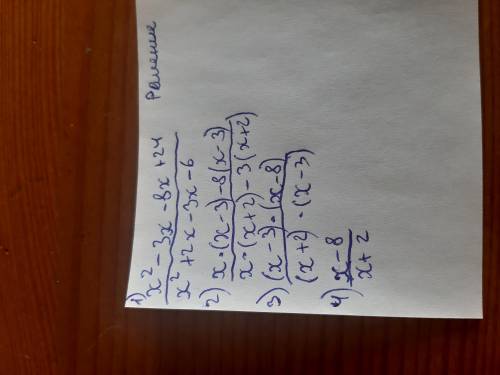 Решение
1) x² - 3x - 8x + 24
x² + 2x - 3x - 6
2) x·(x-3) - 8(x-3)
x·(x+2) - 3(x+2)
3) (x-3)·(x-8)
(x+2)·(x-3)
4) x-8
x+2